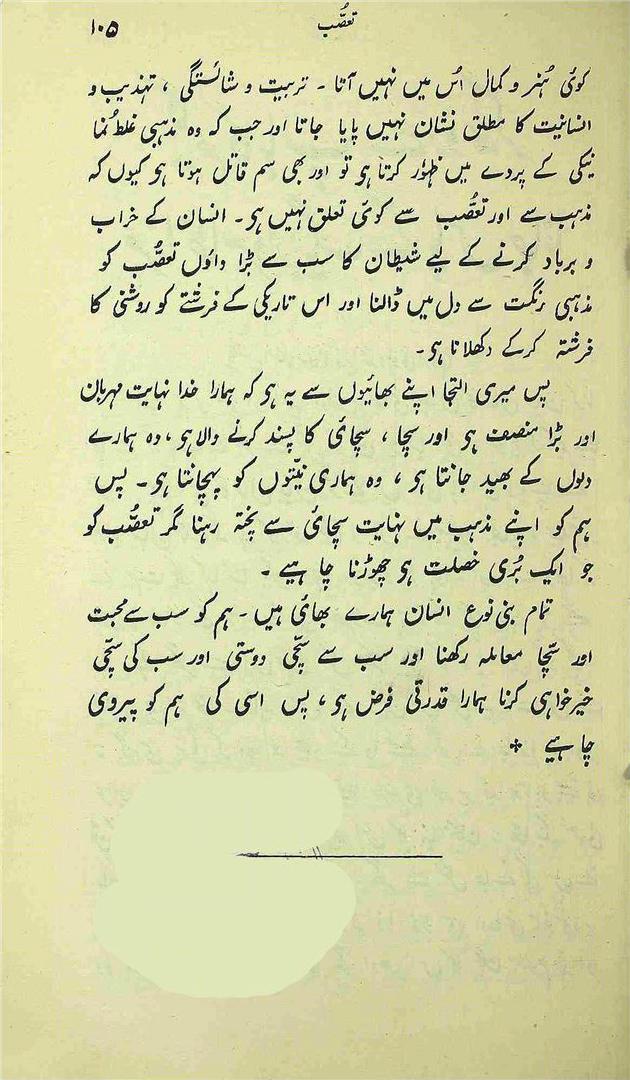 تعصُّب
۱۰۵
کوئی ہُنر و کمال اُس میں نہیں آتا ۔ تربیت و شائستگی ، تہذیب و
انسانیت کا مطلق نشان نہیں پایا جاتا اور جب کہ وہ مذہبی غلط نُما
نیکی کے پردے میں ظہور کرتا ہو تو اور بھی سم قاتل ہوتا ہو کیوں کہ
مذہب سے اور تعصُّب سے کوئی تعلق نہیں ہو۔ انسان کے خراب
و برباد کرنے کے لیے شیطان کا سب سے بڑا داؤں تعصُّب کو
مذہبی رنگت سے دل میں ڈالنا اور اس تاریکی کے فرشتے کو روشنی کا
فرشتہ کرکے دکھلانا ہو۔
پس میری التجا اپنے بھائیوں سے یہ ہو کہ ہمارا خدا نہایت مہربان
اور بڑا منصف ہو اور سچا ، سچائی کا پسند کرنے والا ہو ، وہ ہمارے
دلوں کے بھید جانتا ہو ، وہ ہماری نیّتوں کو پہچانتا ہو۔ پس
ہم کو اپنے مذہب میں نہایت سچائی سے پختہ رہنا مگر تعصُّب کو
جو ایک بُری خصلت ہو چھوڑنا چاہیے ۔
تمام بنی نوع انسان ہمارے بھائی ہیں۔ ہم کو سب سے محبت
اور سچّا معاملہ رکھنا اور سب سے سچّی دوستی اور سب کی سچّی
خیرخواہی کرنا ہمارا قدرتی فرض ہو ، پس اسی کی ہم کو پیروی
چاہیے ❖